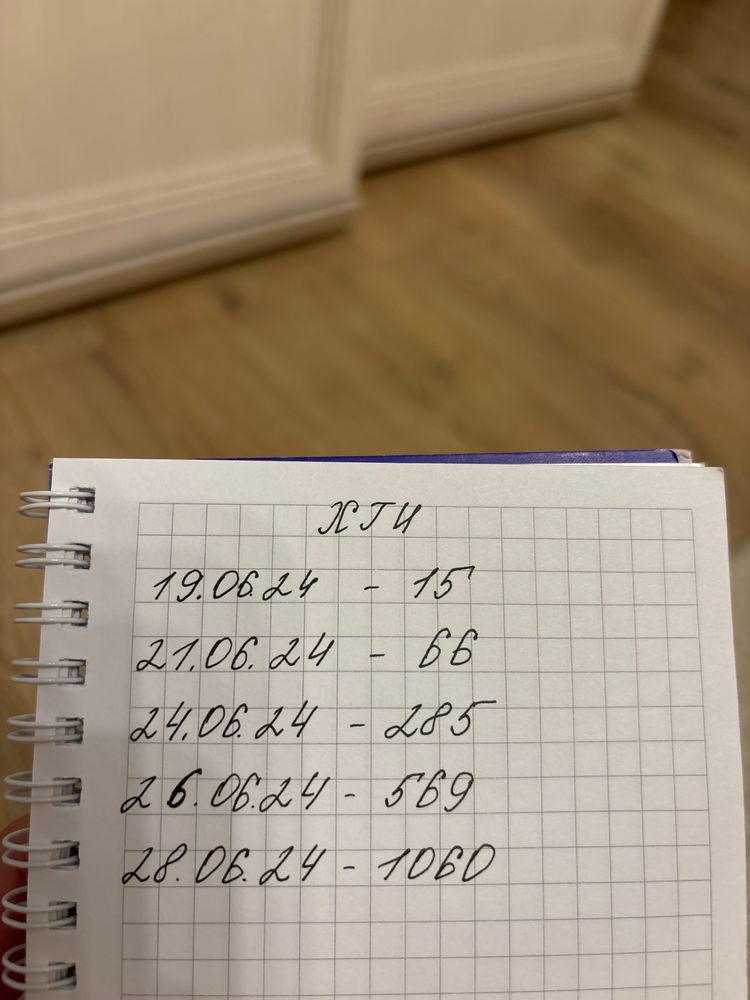 ХГЧ
19.06.24 - 15
21.06.24 - 66
24.06.24 - 285
26.06.24 - 569
28.06.24 - 1060